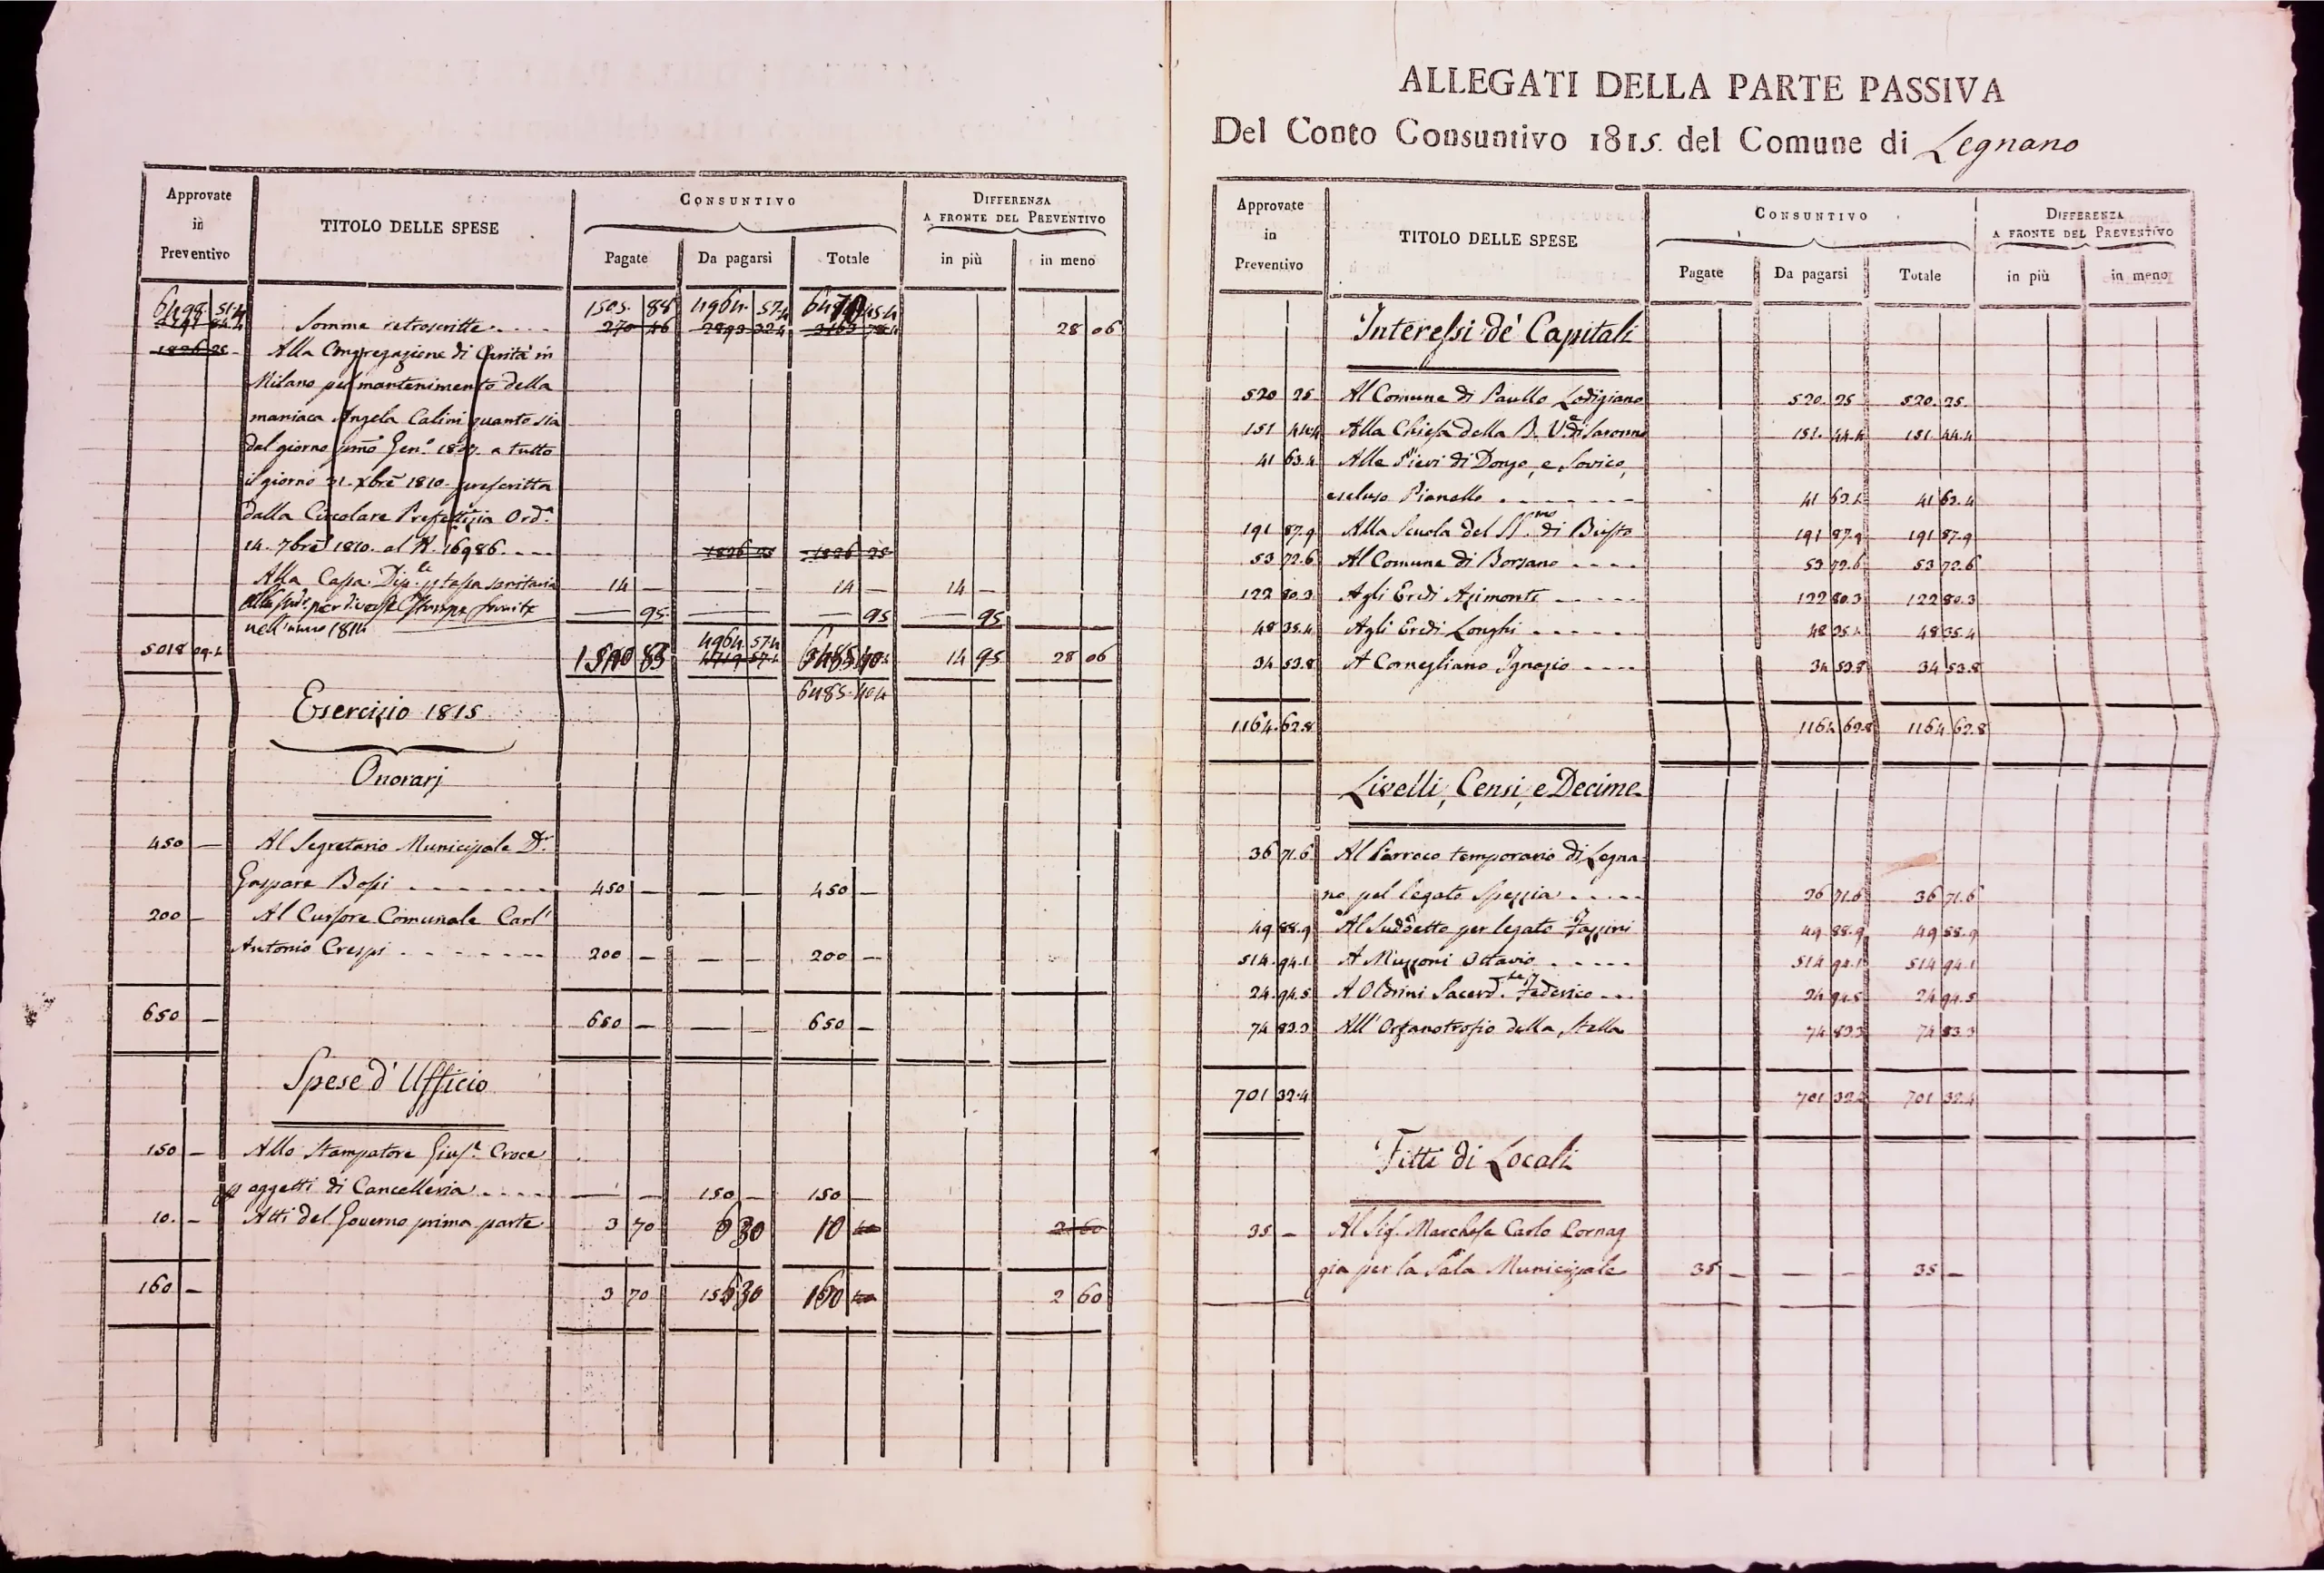 Approvate in Preventivo | TITOLO DELLE SPESE | CONSUNTIVO | DIFFERENZA A FRONTE DEL PREVENTIVO
Pagate | Da pagarsi | Totale | in più | in meno
6498. 51.4 | Somme retroscritte.... | 1505. 88 | 4964. 57.4 | 6470 45.4 | | 28 06
270 46
1826 25 | Alla Congregazione di Carità in
Milano pel mantenimento della
maniaca Angela Calini quanto sia
dal giorno primo Gen.º 1807. a tutto
il giorno 31. Xbre 1810. prescritta
dalla Circolare Prefettizia Ord.ª
14. 7bre 1810. al N. 16986.... | | 1826 25 | 1826 25
Alla Cassa Dip.le p tassa sanitaria | 14 — | | 14 — | 14 —
Alla sud.ª per diverse Stampe fornite | — 95. | — | — 95 | — 95
nell'anno 1814
5018 09.4 | | 83 | 4964 57.4 | | 14 95 | 28 06
6485. 40.4
Esercizio 1815
Onorarj
450 — | Al Segretario Municipale D.r
Gaspare Bossi ....... | 450 — | — — | 450 —
200 — | Al Cursore Comunale Carl'
Antonio Crespi ........ | 200 — | — — | 200 —
650 — | | 650 — | — — | 650 —
Spese d'Ufficio
150 — | Allo Stampatore Gius.e Croce
p oggetti di Cancelleria .... | — — | 150 — | 150 —
10. — | Atti del Governo prima parte | 3 70 | 6 30 | 10 | | 2 60
160 — | | 3 70 | 156 30 | 160 | | 2 60
ALLEGATI DELLA PARTE PASSIVA
Del Conto Consuntivo 1815. del Comune di Legnano
Approvate in Preventivo | TITOLO DELLE SPESE | CONSUNTIVO | DIFFERENZA A FRONTE DEL PREVENTIVO
Pagate | Da pagarsi | Totale | in più | in meno
Interessi de' Capitali
520 25 | Al Comune di Paullo Lodigiano | | 520. 25 | 520. 25.
151 44.4 | Alla Chiesa della B. V. di Saronno | | 151. 44.4 | 151 44.4
41 63.4 | Alle Pievi di Dongo, e Sovico,
escluso Pianello ....... | | 41 63.4 | 41 63.4
191 87.9 | Alla Scuola del SS.mo di Busto | | 191 87.9 | 191 87.9
53 72.6 | Al Comune di Borsano .... | | 53 72.6 | 53 72.6
122 80.3 | Agli Eredi Azimonti ..... | | 122 80.3 | 122 80.3
48 35.4 | Agli Eredi Longhi ..... | | 48 35.4 | 48 35.4
34 53.8 | A Cornegliano Ignazio .... | | 34 53.8 | 34 53.8
1164. 62.8 | | | 1164 62.8 | 1164. 62.8
Livelli, Censi, e Decime
36 71.6 | Al Parroco temporario di Legna-
no pel legato Spezzia ..... | | 36 71.6 | 36 71.6
49 88.9 | Al Suddetto per legato | | 49 88.9 | 49 88.9
514. 94.1 | A Muzzoni Ottavio ..... | | 514 94.1 | 514 94.1
24. 94.5 | A Oldrini Sacerd.te Federico ... | | 24 94.5 | 24 94.5
74 83.3 | All'Orfanotrofio della Stella | | 74 83.3 | 74 83.3
701 32.4 | | | 701 32.4 | 701 32.4
Fitti di Locali
35 — | Al Sig. Marchese Carlo Cornag
gia per la Sala Municipale | 35 — | — — | 35 —